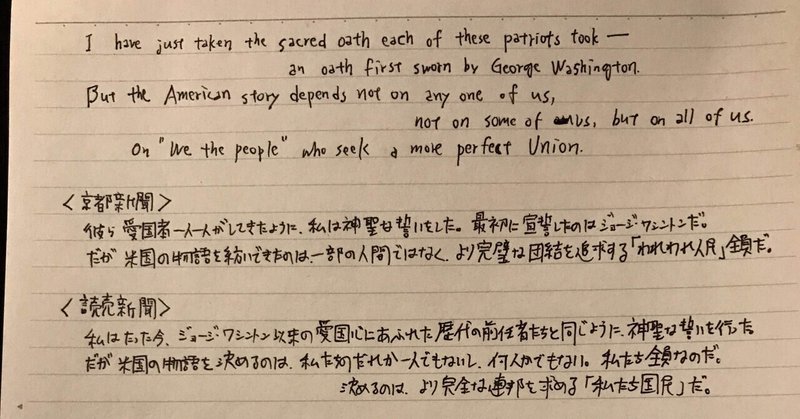 I have just taken the sacred oath each of these patriots took —
an oath first sworn by George Washington.
But the American story depends not on any one of us,
not on some of us, but on all of us.
On "We the people" who seek a more perfect Union.
<京都新聞>
彼ら愛国者一人一人がしてきたように、私は神聖な誓いをした。最初に宣誓したのはジョージ・ワシントンだ。
だが米国の物語を紡いできたのは、一部の人間ではなく、より完璧な団結を追求する「われわれ人民」全員だ。
<読売新聞>
私はたった今、ジョージ・ワシントン以来の愛国心にあふれた歴代の前任者たちと同じように、神聖な誓いを行った
だが米国の物語を決めるのは、私たちのだれか一人でもないし、何人かでもない。私たち全員なのだ。
決めるのは、より完全な連邦を求める「私たち国民」だ。